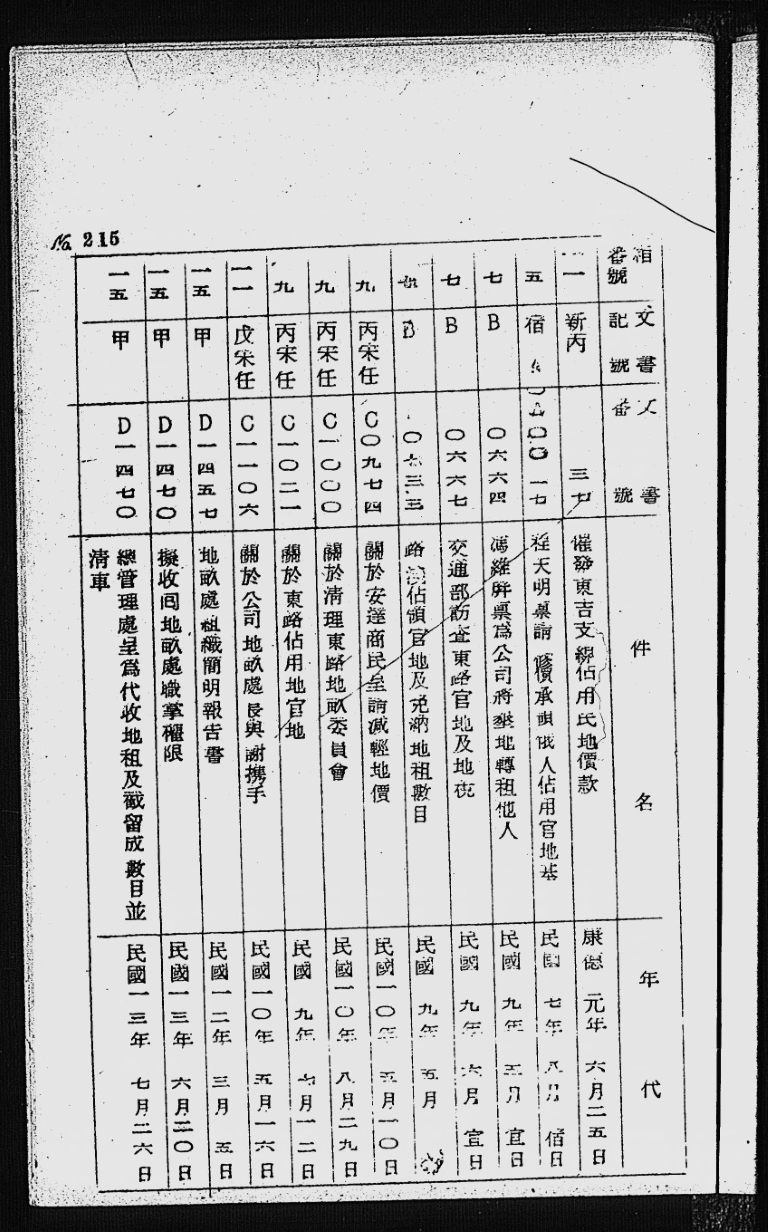 No. 215
箱番號 文書記號 文書番號 件名 年代
一一 新丙 三七 催發東吉支線佔用民地價款 康德元年六月二五日
五 宿 一七 程天明稟請 價承 俄人佔用官地基 民國七年八月 日
七 B 〇六六四 馮維 稟為公司將墾地轉租他人 民國九年五月 日
七 B 〇六六七 交通部 查東路官地及地 民國九年六月 日
B 〇七三三 路 佔領官地及 納地租數目 民國九年五月
九 丙宋任 C〇九七四 關於安達商民呈請減輕地價 民國一〇年五月一〇日
九 丙宋任 C一〇〇〇 關於清理東路地畝委員會 民國一〇年八月二九日
九 丙宋任 C一〇二一 關於東路佔用地官地 民國九年七月一二日
一一 戊宋任 C一一〇六 關於公司地畝處長與謝携手 民國一〇年五月一六日
一五 甲 D一四五七 地畝處組織簡明報告書 民國一二年三月五日
一五 甲 D一四七〇 擬收回地畝處職掌權限 民國一三年六月二〇日
一五 甲 D一四七〇 總管理處呈為代收地租及截留成數目並
清車 民國一三年七月二六日